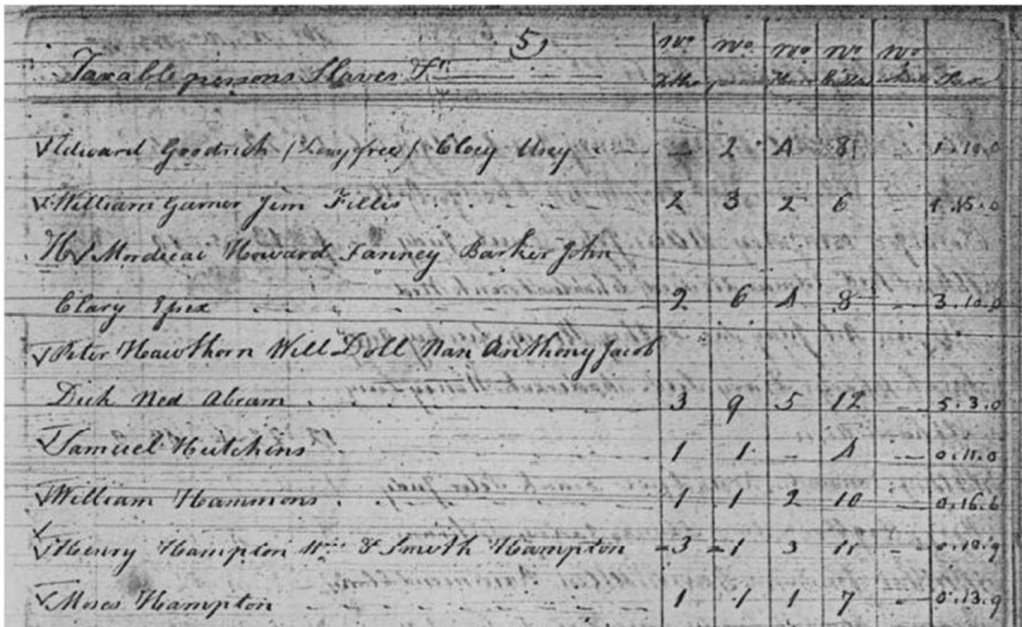 5
no no no no no
Taxable persons Slaves &c Tax
Edward Goodrich (Levy free) Cloey Usey - 2 4 8 1.10.0
William Garner Jim Fillis 2 3 2 6 - 1.15.0
Mordicai Howard Fanney Barker John
Clary Epex 2 6 4 8 - 3.10.0
Peter Hawthorn Will Doll Nan Anthony Jacob
Dick Ned Abram 3 9 5 12 - 5.3.0
Samuel Hutchins 1 1 - 4 - 0.11.0
William Hammons 1 1 2 10 - 0.16.6
Henry Hampton Wm & Smith Hampton 3 1 3 11 - 0.18.9
Moses Hampton 1 1 1 7 - 0.13.9